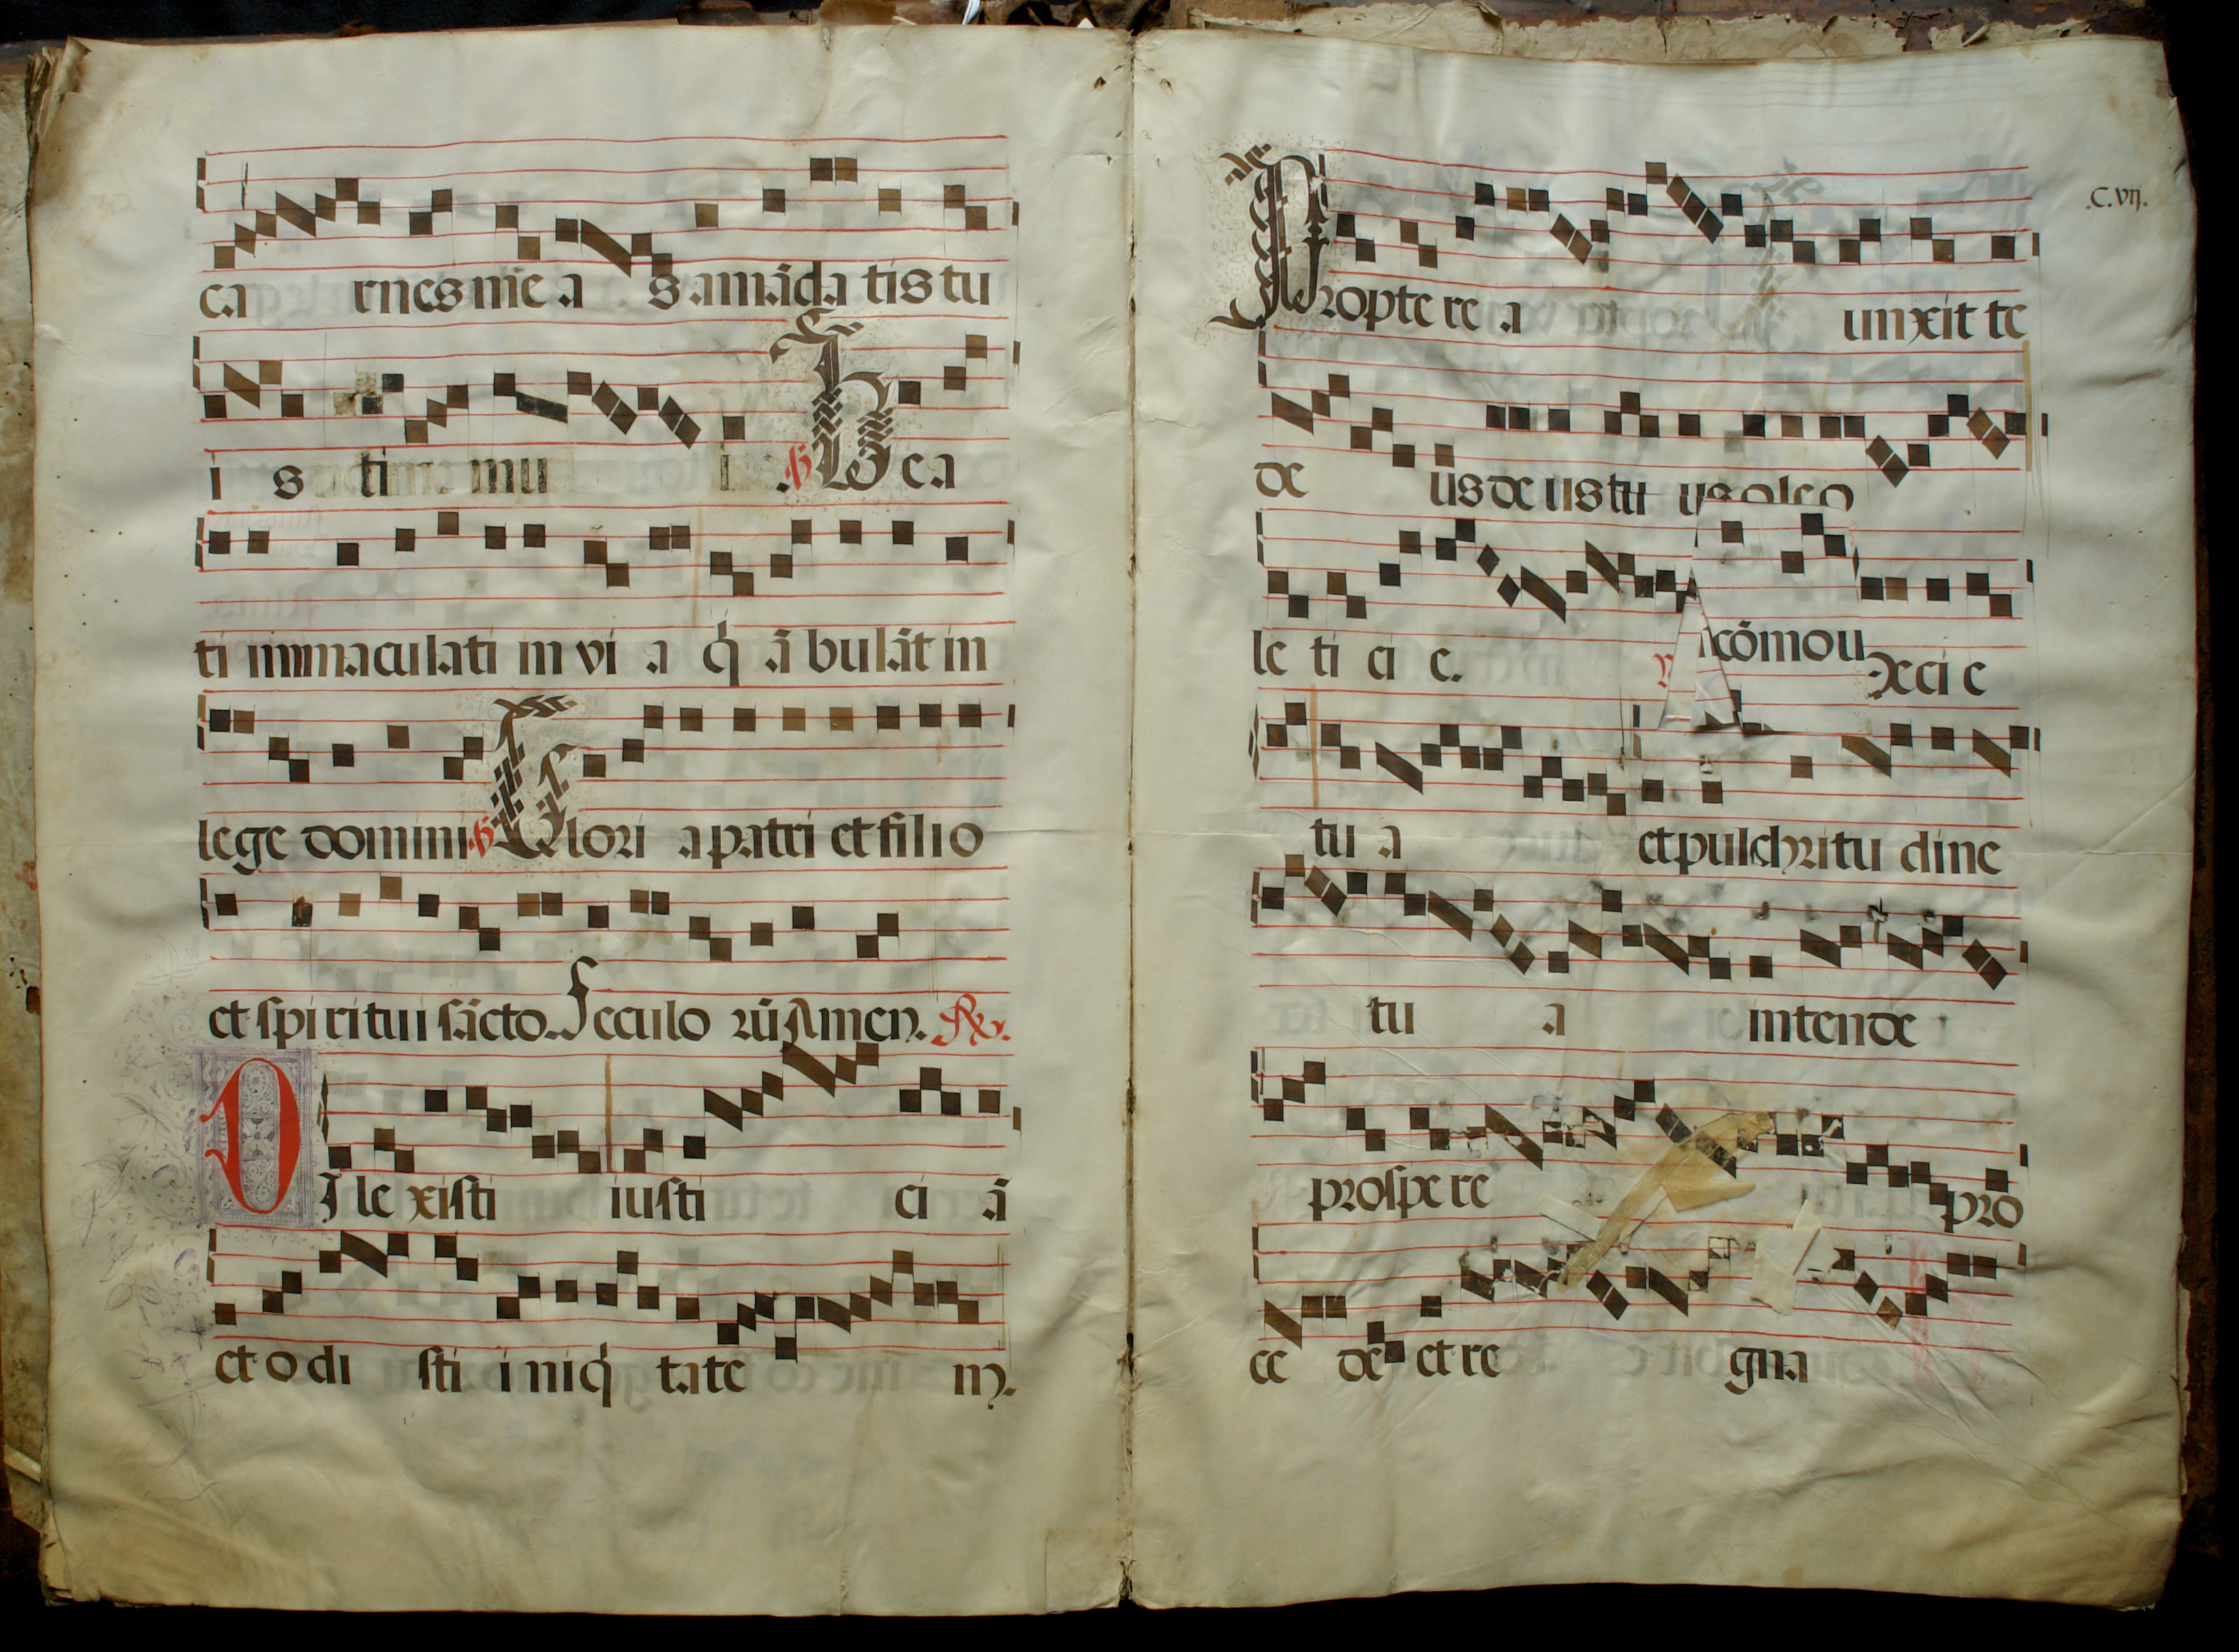 ca rnes me a s a mãda tis tu
i s ti me mu i . ℣ Bea
ti immaculati in vi a q̃ ã bulãt in
lege domini ℣ Glori a patri et filio
et spiritui sãcto. Seculo rũ Amen. ℟.
DI le xisti iusti ci ã
et o di sti i niq̃ tate m.
C. vij.
Propte re a unxit te
de us de us tu us oleo
le ti ci e. cõmou eci e
tu a et pulchritu dine
tu a intende
prospe re pro
ce de et re gna